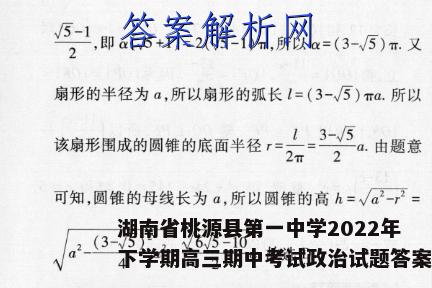 答案解析网
√5-1/2 ,即 α 所以 α=(3-√5)π. 又
扇形的半径为 a,所以扇形的弧长 l=(3-√5)πa. 所以
该扇形围成的圆锥的底面半径 r=l/2π=3-√5/2 a. 由题意
可知,圆锥的母线长为 a,所以圆锥的高 h=√a²-r²=
湖南省桃源县第一中学2022年
下学期高三期中考试政治试题答案